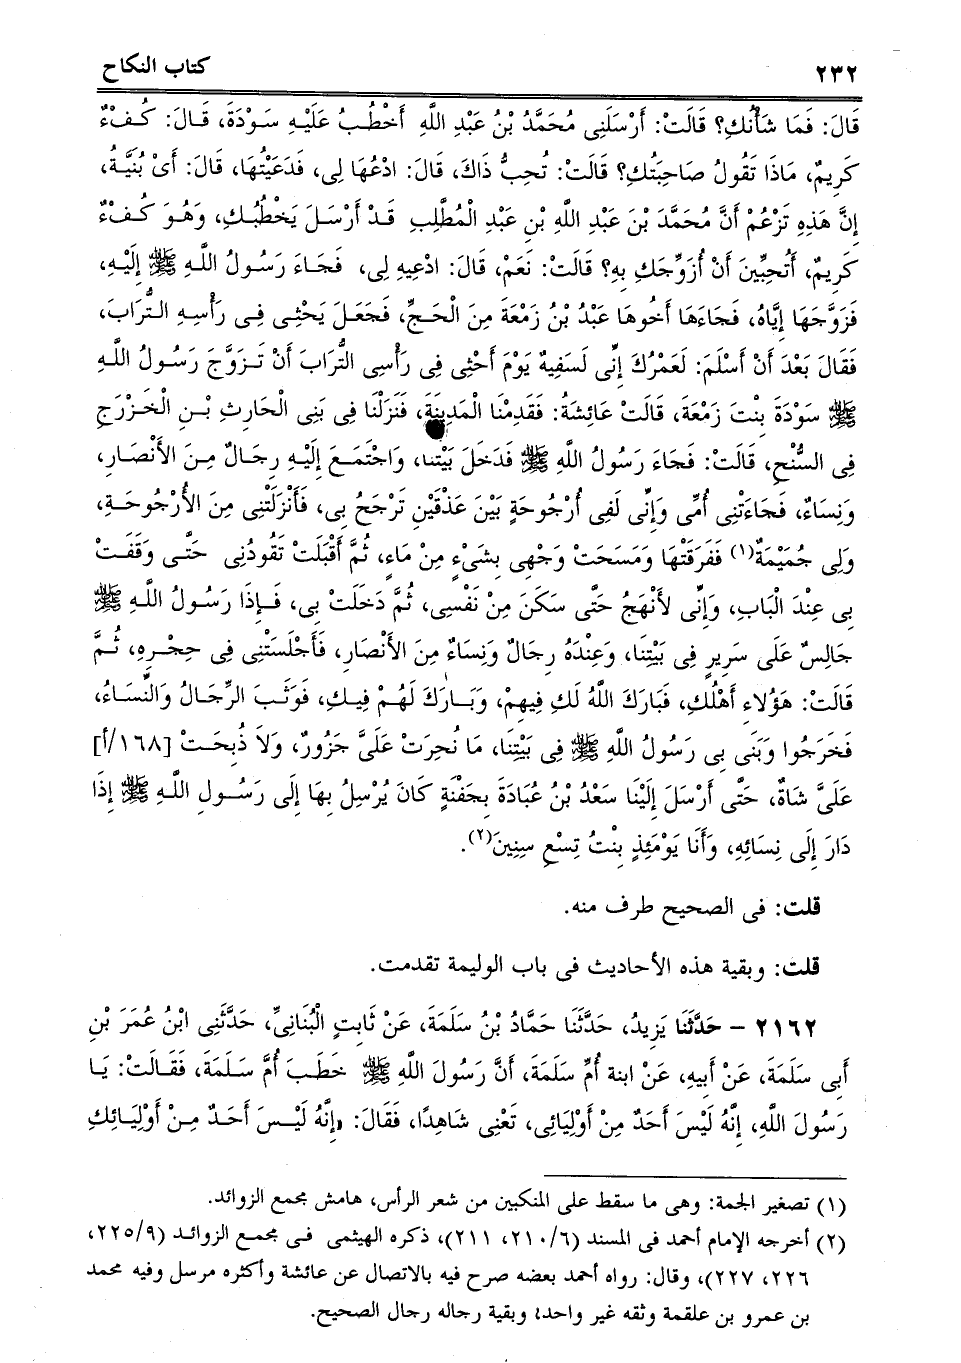 ٢٣٢ كتاب النكاح
قَالَ: فَمَا شَأْنُكِ؟ قَالَتْ: أَرْسَلَنِى مُحَمَّدُ بْنُ عَبْدِ اللَّهِ أَخْطُبُ عَلَيْهِ سَوْدَةَ، قَالَ: كُفْءٌ
كَرِيمٌ، مَاذَا تَقُولُ صَاحِبَتُكِ؟ قَالَتْ: تُحِبُّ ذَاكَ، قَالَ: ادْعُهَا لِى، فَدَعَيْتُهَا، قَالَ: أَىْ بُنَيَّةُ،
إِنَّ هَذِهِ تَزْعُمْ أَنَّ مُحَمَّدَ بْنَ عَبْدِ اللَّهِ بْنِ عَبْدِ الْمُطَّلِبِ قَدْ أَرْسَلَ يَخْطُبُكِ، وَهُوَ كُفْءٌ
كَرِيمٌ، أَتُحِبِّينَ أَنْ أُزَوِّجَكِ بِهِ؟ قَالَتْ: نَعَمْ، قَالَ: ادْعِيهِ لِى، فَجَاءَ رَسُولُ اللَّهِ ﷺ إِلَيْهِ،
فَزَوَّجَهَا إِيَّاهُ، فَجَاءَهَا أَخُوهَا عَبْدُ بْنُ زَمْعَةَ مِنَ الْحَجِّ، فَجَعَلَ يَحْثِى فِى رَأْسِهِ التُّرَابَ،
فَقَالَ بَعْدَ أَنْ أَسْلَمَ: لَعَمْرُكَ إِنِّى لَسَفِيهٌ يَوْمَ أَحْثِى فِى رَأْسِى التُّرَابَ أَنْ تَزَوَّجَ رَسُولُ اللَّهِ
ﷺ سَوْدَةَ بِنْتَ زَمْعَةَ، قَالَتْ عَائِشَةُ: فَقَدِمْنَا الْمَدِينَةَ، فَنَزَلْنَا فِى بَنِى الْحَارِثِ بْنِ الْخَزْرَجِ
فِى السُّنْحِ، قَالَتْ: فَجَاءَ رَسُولُ اللَّهِ ﷺ فَدَخَلَ بَيْتَنَا، وَاجْتَمَعَ إِلَيْهِ رِجَالٌ مِنَ الأَنْصَارِ،
وَنِسَاءٌ، فَجَاءَتْنِى أُمِّى وَإِنِّى لَفِى أُرْجُوحَةٍ بَيْنَ عَذْقَيْنِ تَرْجَحُ بِى، فَأَنْزَلَتْنِى مِنَ الأُرْجُوحَةِ،
وَلِى جُمَيْمَةٌ(١) فَفَرَقَتْهَا وَمَسَحَتْ وَجْهِى بِشَىْءٍ مِنْ مَاءٍ، ثُمَّ أَقْبَلَتْ تَقُودُنِى حَتَّى وَقَفَتْ
بِى عِنْدَ الْبَابِ، وَإِنِّى لأَنْهَجُ حَتَّى سَكَنَ مِنْ نَفْسِى، ثُمَّ دَخَلَتْ بِى، فَإِذَا رَسُولُ اللَّهِ ﷺ
جَالِسٌ عَلَى سَرِيرٍ فِى بَيْتِنَا، وَعِنْدَهُ رِجَالٌ وَنِسَاءٌ مِنَ الأَنْصَارِ، فَأَجْلَسَتْنِى فِى حِجْرِهِ، ثُمَّ
قَالَتْ: هَؤُلاءِ أَهْلُكِ، فَبَارَكَ اللَّهُ لَكِ فِيهِمْ، وَبَارَكَ لَهُمْ فِيكِ، فَوَثَبَ الرِّجَالُ وَالنِّسَاءُ،
فَخَرَجُوا وَبَنَى بِى رَسُولُ اللَّهِ ﷺ فِى بَيْتِنَا، مَا نُحِرَتْ عَلَىَّ جَزُورٌ، وَلاَ ذُبِحَتْ [١٦٨/أ]
عَلَىَّ شَاةٌ، حَتَّى أَرْسَلَ إِلَيْنَا سَعْدُ بْنُ عُبَادَةَ بِجَفْنَةٍ كَانَ يُرْسِلُ بِهَا إِلَى رَسُولِ اللَّهِ ﷺ إِذَا
دَارَ إِلَى نِسَائِهِ، وَأَنَا يَوْمَئِذٍ بِنْتُ تِسْعِ سِنِينَ(٢).
قلت: فى الصحيح طرف منه.
قلت: وبقية هذه الأحاديث فى باب الوليمة تقدمت.
٢١٦٢ – حَدَّثَنَا يَزِيدُ، حَدَّثَنَا حَمَّادُ بْنُ سَلَمَةَ، عَنْ ثَابِتٍ الْبُنَانِىِّ، حَدَّثَنِى ابْنُ عُمَرَ بْنِ
أَبِى سَلَمَةَ، عَنْ أَبِيهِ، عَنْ ابنة أُمِّ سَلَمَةَ، أَنَّ رَسُولَ اللَّهِ ﷺ خَطَبَ أُمَّ سَلَمَةَ، فَقَالَتْ: يَا
رَسُولَ اللَّهِ، إِنَّهُ لَيْسَ أَحَدٌ مِنْ أَوْلِيَائِى، تَعْنِى شَاهِدًا، فَقَالَ: «إِنَّهُ لَيْسَ أَحَدٌ مِنْ أَوْلِيَائِكِ
(١) تصغير الجمة: وهى ما سقط على المنكبين من شعر الرأس، هامش مجمع الزوائد.
(٢) أخرجه الإمام أحمد فى المسند (٢١٠/٦، ٢١١)، ذكره الهيثمى فى مجمع الزوائد (٢٢٥/٩،
٢٢٦، ٢٢٧)، وقال: رواه أحمد بعضه صرح فيه بالاتصال عن عائشة وأكثره مرسل وفيه محمد
بن عمرو بن علقمة وثقه غير واحد، وبقية رجاله رجال الصحيح.